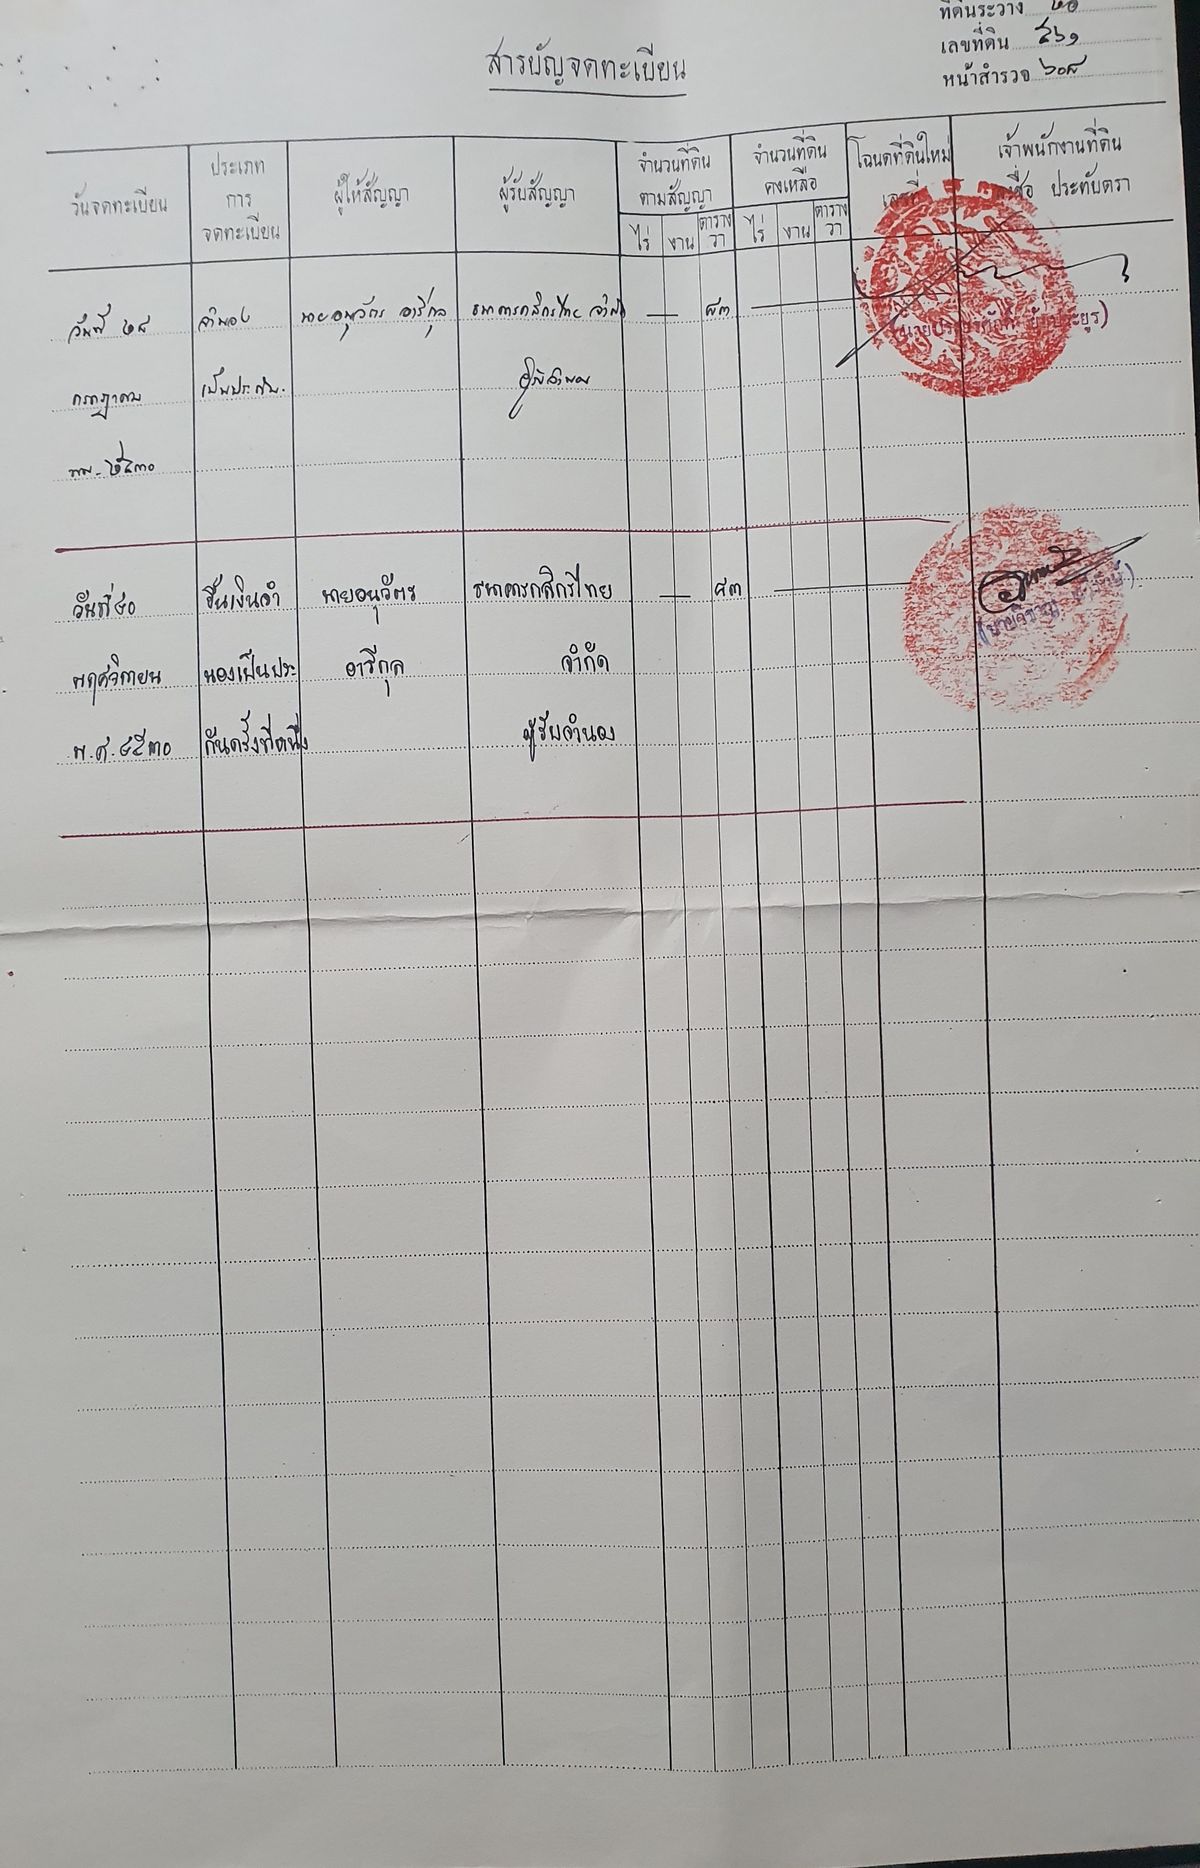 ที่ดินระวาง
เลขที่ดิน ๕๖๑
หน้าสำรวจ ๖๐๘
สารบัญจดทะเบียน
วันจดทะเบียน
ประเภท
การ
จดทะเบียน
ผู้ให้สัญญา
ผู้รับสัญญา
จำนวนที่ดิน
ตามสัญญา
ไร่ งาน ตาราง
วา
จำนวนที่ดิน
คงเหลือ
ไร่ งาน ตาราง
วา
โฉนดที่ดินใหม่
เลขที่
เจ้าพนักงานที่ดิน
ประทับตรา
วันที่ ๒๘ จำนอง นายอนุวัตร อารีกุล ธนาคารกสิกรไทย จำกัด — ๘๓ —
กรกฎาคม เป็นประกัน ผู้รับจำนอง
พ.ศ. ๒๕๓๐
วันที่ ขึ้นเงินจำ นายอนุวัตร ธนาคารกสิกรไทย — ๘๓ —
พฤศจิกายน นองเป็นประ อารีกุล จำกัด
พ.ศ. ๒๕๓๐ กันครั้งที่หนึ่ง ผู้รับจำนอง